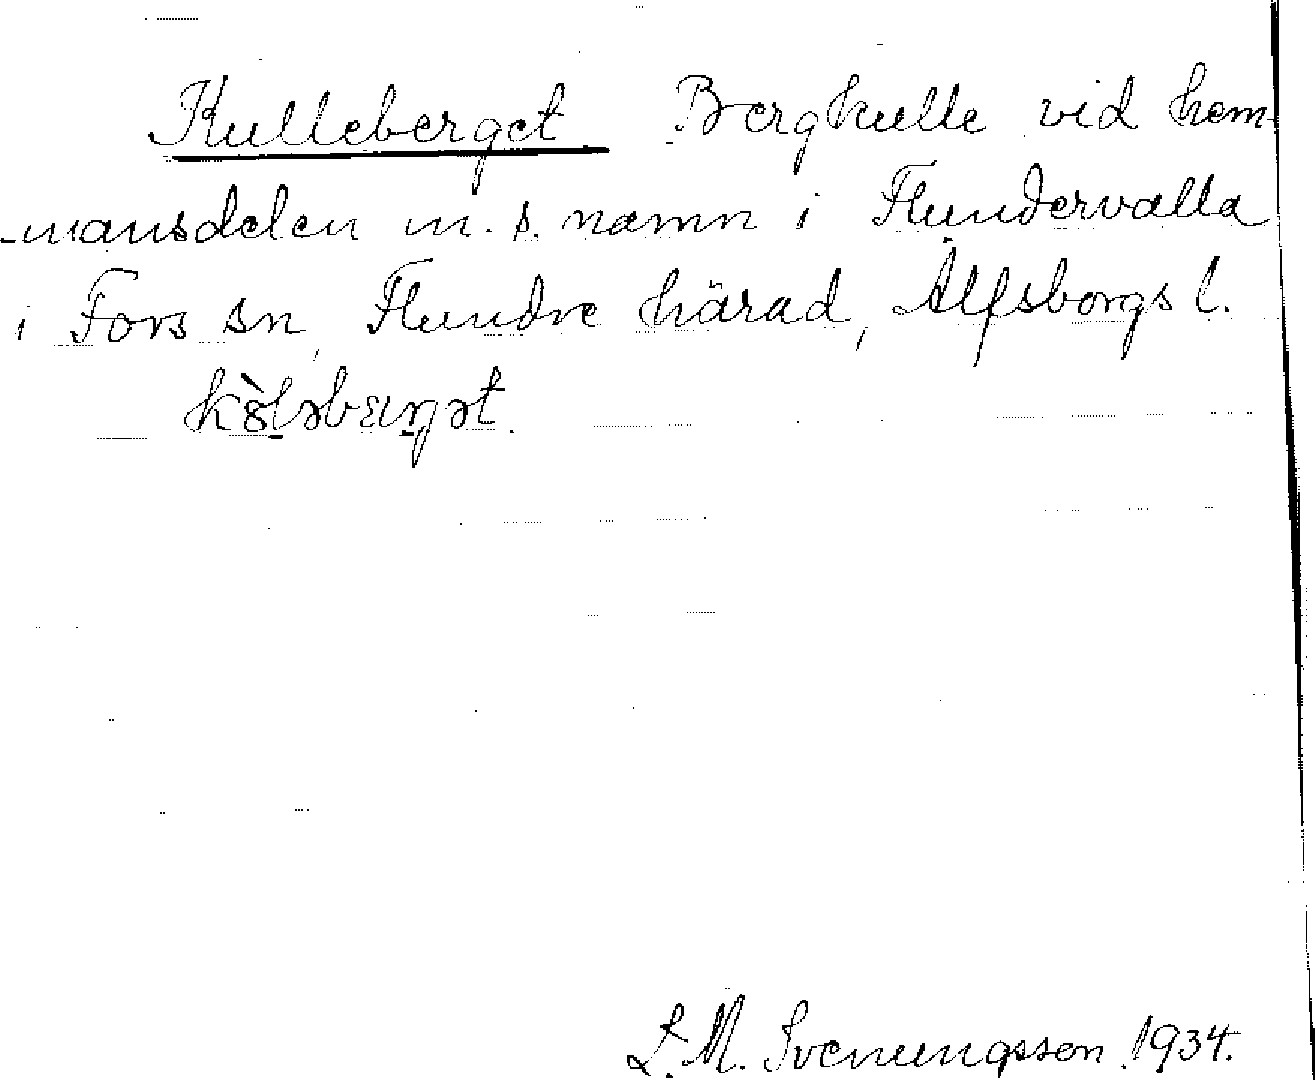 Kulleberget Bergkulle vid hem-
-mansdelen m. s. namn i Flundervalla
i Fors sn, Flundre härad, Älfsborgs l.
L. M. Svenungsson 1934.